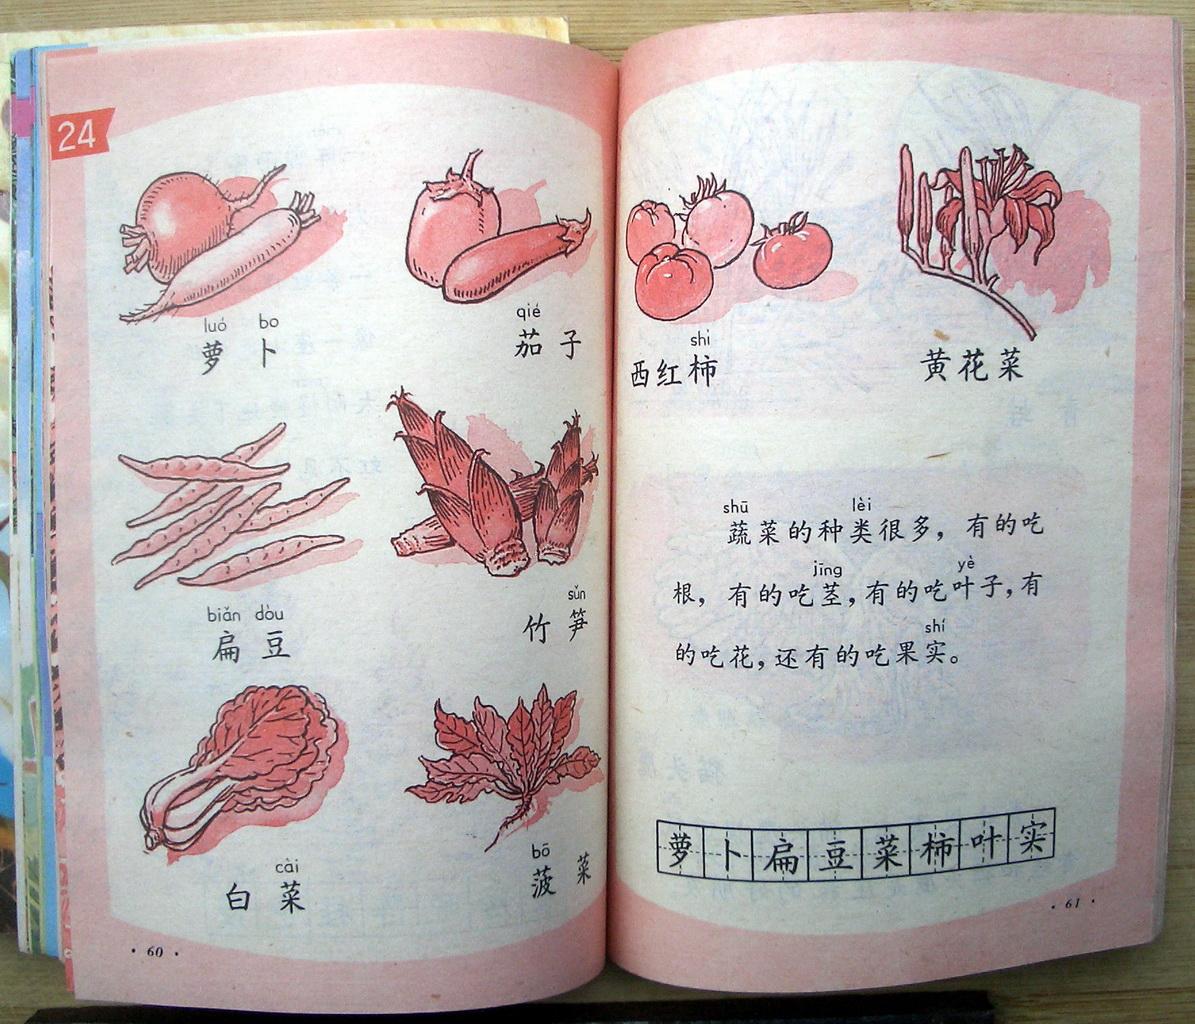 24
luó bo
萝卜
qié
茄子
biǎn dòu
扁豆
sǔn
竹笋
cài
白菜
bō
菠菜
· 60 ·
shi
西红柿
黄花菜
shū lèi
蔬菜的种类很多，有的吃
jīng yè
根，有的吃茎，有的吃叶子，有
shí
的吃花，还有的吃果实。
萝卜扁豆菜柿叶实
· 61 ·